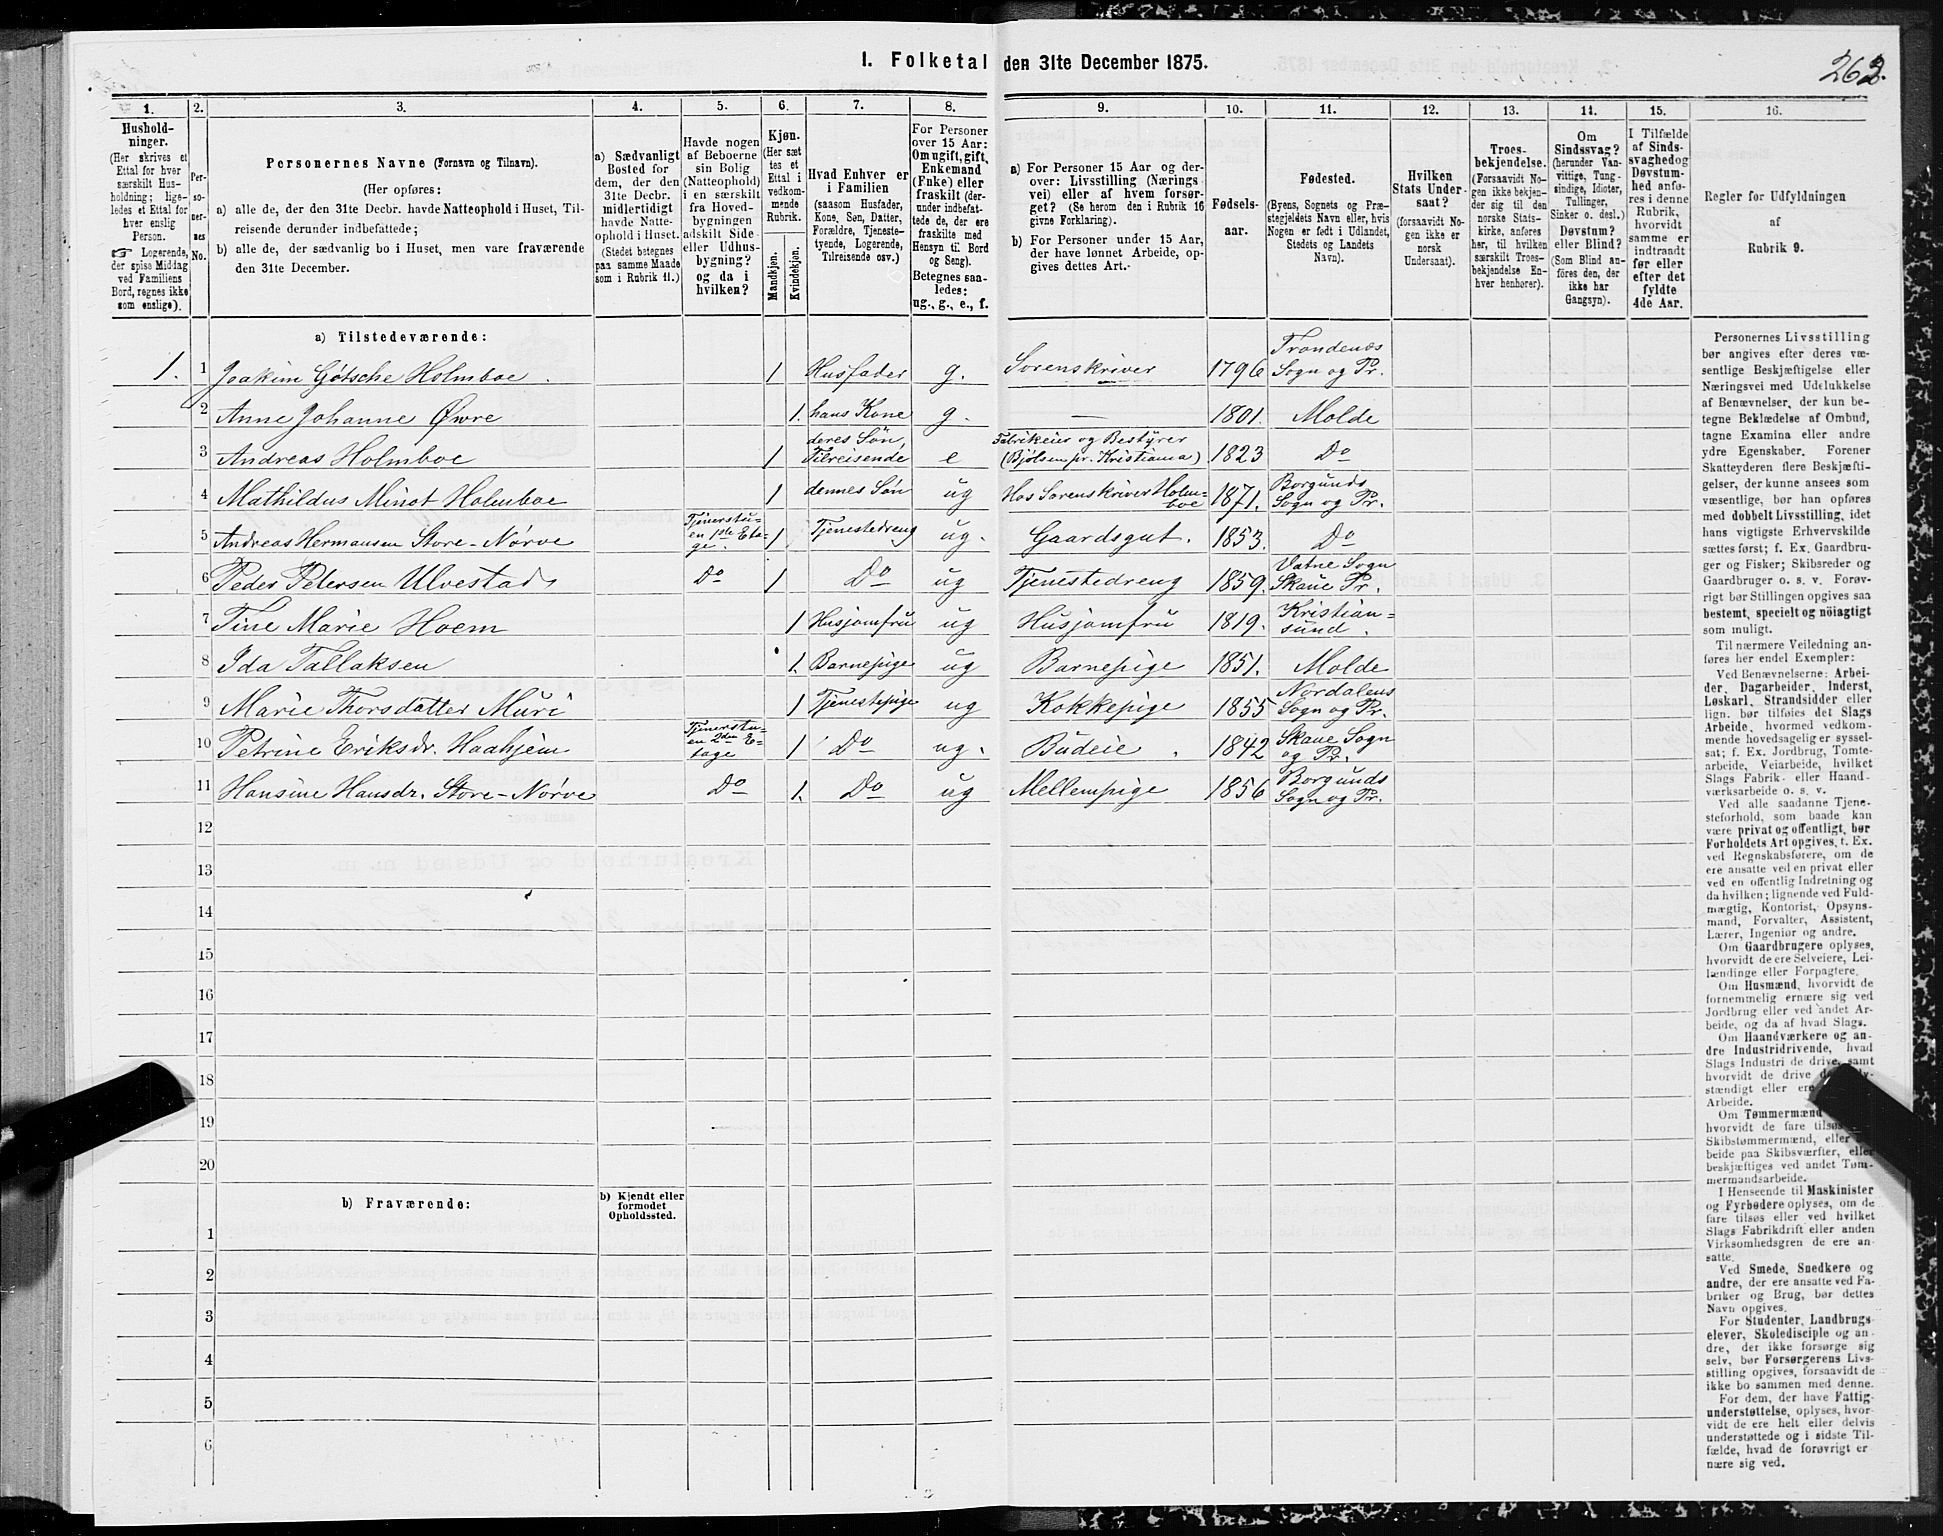 I. Folketal den 31te December 1875.
262.
1.
Hushold-
ninger.
(Her skrives et
Ettal for hver
særskilt Hus-
holdning; lige-
ledes et Ettal for
hver enslig
Person.
☞ Logerende,
der spise Middag
ved Familiens
Bord, regnes ikke
som enslige).
2.
Per-
so-
ner-
nes
No.
3.
Personernes Navne (Fornavn og Tilnavn).
(Her opføres:
a) alle de, der den 31te Decbr. havde Natteophold i Huset, Til-
reisende derunder indbefattede;
b) alle de, der sædvanlig bo i Huset, men vare fraværende
den 31te December.
4.
a) Sædvanligt
Bosted for
dem, der den
31te Decbr.
midlertidigt
havde Natte-
ophold i Huset.
(Stedet betegnes
paa samme Maade
som i Rubrik 11.)
5.
Havde nogen
af Beboerne
sin Bolig
(Natteophold)
i en særskilt
fra Hoved-
bygningen
adskilt Side-
eller Udhus-
bygning?
og da i
hvilken?
6.
Kjøn.
(Her sæt
tes et
Ettal i
vedkom-
mende
Rubrik.
Mandkjøn.
Kvindekjøn.
7.
Hvad Enhver er
i Familien
(saasom Husfader,
Kone, Søn, Datter,
Forældre, Tjeneste-
tyende, Logerende,
Tilreisende osv.)
8.
For Personer
over 15 Aar:
Om ugift, gift,
Enkemand
(Enke) eller
fraskilt (der-
under indbefat-
tede de, der ere
fraskilte med
Hensyn til Bord
og Seng).
Betegnes saa-
ledes:
ug., g., e., f.
9.
a) For Personer 15 Aar og der-
over: Livsstilling (Nærings-
vei) eller af hvem forsør-
get? (Se herom den i Rubrik 16
givne Forklaring).
b) For Personer under 15 Aar,
der have lønnet Arbeide, op-
gives dettes Art.
10.
Fødsels-
aar.
11.
Fødested.
(Byens, Sognets og Præ-
stegjeldets Navn eller, hvis
Nogen er født i Udlandet,
Stedets og Landets
Navn).
12.
Hvilken
Stats Under-
saat?
(forsaavidt No-
gen ikke er
norsk
Undersaat).
13.
Troes-
bekjendelse.
(Forsaavidt No-
gen ikke bekjen-
der sig til den
norske Stats-
kirke, anføres
her, til hvilken
særskilt Troes-
bekjendelse En-
hver henhører).
14.
Om
Sindssvag?
(herunder Van-
vittige, Tung-
sindige, Idioter,
Tullinger,
Sinker o. desl.)
Døvstum?
eller Blind?
(Som Blind an-
føres den, der
ikke har
Gangsyn).
15.
I Tilfælde
af Sinds-
svaghed og
Døvstum-
hed anfø-
res i denne
Rubrik,
hvorvidt
samme er
indtraadt
før eller
efter det
fyldte
4de Aar.
16.
Regler for Udfyldningen
af
Rubrik 9.
a) Tilstedeværende:
1. 1 Joakim Gøtsche Holmboe. 1 Husfader g. Sorenskriver 1796 Trondenæs Sogn og Pr.
2 Anne Johanne Øwre 1. hans Kone g. — 1801. Molde
3 Andreas Holmboe 1 deres Søn, Tilreisende e Fabrikeier og Bestyrer (Bjølsen pr. Kristiania) 1823 Do
4 Mathildus Minot Holmboe 1 dennes Søn ug Hos Sorenskriver Holmboe 1871. Borgunds Sogn og Pr.
5 Andreas Hermansen Store-Nørve Tjenerstuen 1ste Etage. 1 Tjenestedreng ug. Gaardsgut. 1853. Do
6 Peder Petersen Ulvestad Do 1 Do ug Tjenestedreng 1859. Vatne Sogn Skaue Pr.
7 Tine Marie Hoem 1 Husjomfru ug Husjomfru 1819. Kristiansund.
8 Ida Tallaksen 1. Barnepige ug Barnepige 1851. Molde
9 Marie Thorsdatter Muri 1 Tjenestepige ug Kokkepige 1855 Nordalens Sogn og Pr.
10 Petrine Eriksdr. Haahjem Tjenerstuen 2den Etage 1 Do ug. Budeie. 1842 Skaue Sogn og Pr.
11 Hansine Hansdr. Store-Nørve Do 1. Do ug Mellempige 1856 Borgunds Sogn og Pr.
12
13
14
15
16
17
18
19
20
b) Fraværende:
b) Kjendt eller
formodet
Opholdssted.
1
2
3
4
5
6
Personernes Livsstilling
bør angives efter deres væ-
sentlige Beskjæftigelse eller
Næringsvei med Udelukkelse
af Benævnelser, der kun be-
tegne Beklædelse af Ombud,
tagne Examina eller andre
ydre Egenskaber. Forener
Skatteyderen flere Beskjæfti-
gelser, der kunne ansees som
væsentlige, bør han opføres
med dobbelt Livsstilling, idet
hans vigtigste Erhvervskilde
sættes først; f. Ex. Gaardbru-
ger og Fisker; Skibsreder og
Gaardbruger o. s. v. Forøv-
rigt bør Stillingen opgives saa
bestemt, specielt og nöiagtigt
som muligt.
Til nærmere Veiledning an-
føres her endel Exempler:
Ved Benævnelserne: Arbei-
der, Dagarbeider, Inderst,
Løskarl, Strandsidder eller
lign. bør tilføies det Slags
Arbeide, hvormed vedkom-
mende hovedsagelig er syssel-
sat; f. Ex. Jordbrug, Tomte-
arbeide, Veiarbeide, hvilket
Slags Fabrik- eller Haand-
værksarbeide o. s. v.
Ved alle saadanne Tjene-
steforhold, som baade kan
være privat og offentligt, bør
Forholdets Art opgives, f. Ex.
ved Regnskabsførere, om de
ere ansatte ved en privat eller
ved en offentlig Indretning og
da hvilken; lignende ved Fuld-
mægtig, Kontorist, Opsyns-
mand, Forvalter, Assistent,
Lærer, Ingeniør og andre.
Om Gaardbrugere oplyses,
hvorvidt de ere Selveiere, Lei-
lændinge eller Forpagtere.
Om Husmænd, hvorvidt de
fornemmelig ernære sig ved
Jordbrug eller ved andet Ar-
beide, og da af hvad Slags.
Om Haandværkere og an-
dre Industridrivende, hvad
Slags Industri de drive, samt
hvorvidt de drive
stændigt eller ere
Arbeide.
Om Tømmermænd
hvorvidt de fare tilsøs
Skibstømmermænd, eller
beide paa Skibsværfter, eller
beskjæftiges ved andet Tøm-
mermandsarbeide.
I Henseende til Maskinister
og Fyrbødere oplyses, om de
fare tilsøs eller ved hvilket
Slags Fabrikdrift eller anden
Virksomhedsgren de ere an-
satte.
Ved Smede, Snedkere og
andre, der ere ansatte ved Fa-
briker og Brug, bør dettes
Navn opgives.
For Studenter, Landbrugs-
elever, Skoledisciple og an-
dre, der ikke forsørge sig
selv, bør Forsørgerens Livs-
stilling opgives, forsaavidt de
ikke bo sammen med denne.
For dem, der have Fattig-
understøttelse, oplyses, hvor-
vidt de ere helt eller delvis
understøttede og i sidste Til-
fælde, hvad de forøvrigt er
nære sig ved.